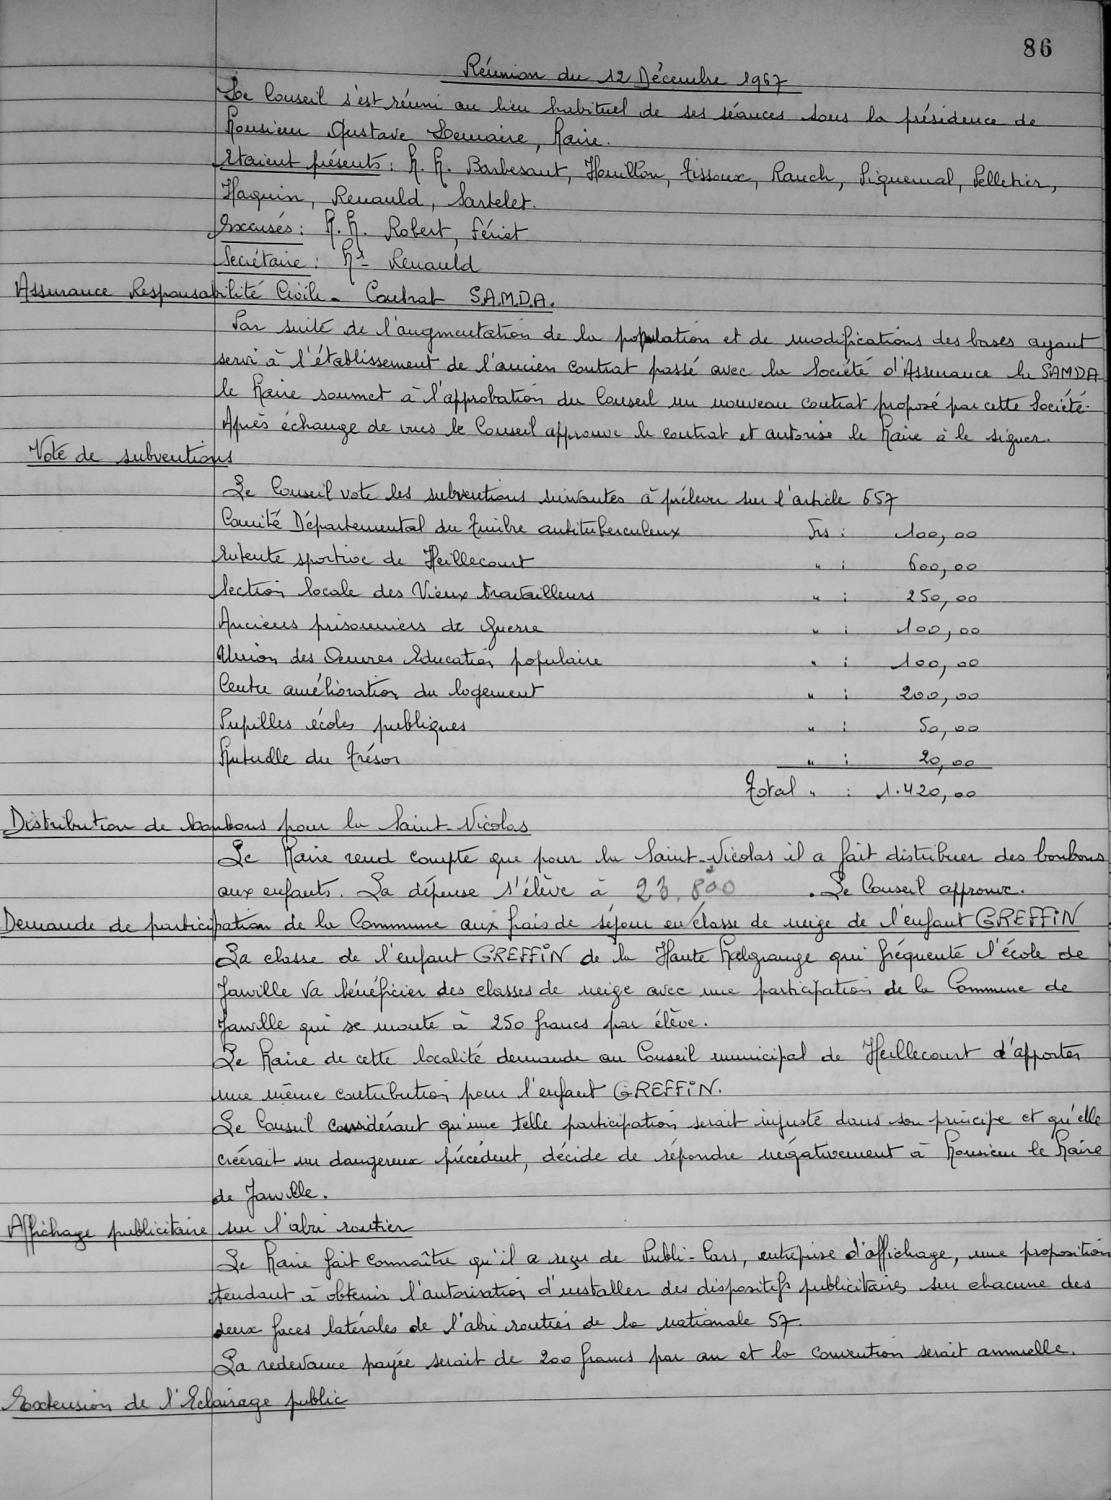 86
Réunion du 12 Décembre 1967
Le Conseil s'est réuni au lieu habituel de ses séances sous la présidence de
Monsieur Gustave Lemaire, Maire.
Etaient présents : M.M. Barbesant, Houillon, Tissoux, Rauch, Piquemal, Pelletier,
Haquin, Renauld, Sartelet.
Excusés : M.M. Robert, Fériet
Secrétaire : Mr Renauld
Assurance Responsabilité Civile - Contrat S.A.M.D.A.
Par suite de l'augmentation de la population et de modifications des bases ayant
servi à l'établissement de l'ancien contrat passé avec la Société d'Assurance la SAMDA
le Maire soumet à l'approbation du Conseil un nouveau contrat proposé par cette Société.
Après échange de vues le Conseil approuve le contrat et autorise le Maire à le signer.
Vote de subventions
Le Conseil vote les subventions suivantes à prélever sur l'article 657
Comité Départemental du Timbre antituberculeux Frs : 100,00
Entente sportive de Heillecourt " : 600,00
Section locale des Vieux travailleurs " : 250,00
Anciens prisonniers de Guerre " : 100,00
Union des Oeuvres Education populaire " : 100,00
Centre amélioration du logement " : 200,00
Pupilles écoles publiques " : 50,00
Mutuelle du Trésor " : 20,00
Total " : 1.420,00
Distribution de bonbons pour la Saint-Nicolas
Le Maire rend compte que pour la Saint-Nicolas il a fait distribuer des bonbons
aux enfants. La dépense s'élève à 23.800 . Le Conseil approuve.
Demande de participation de la Commune aux frais de séjour en classe de neige de l'enfant GREFFIN
La classe de l'enfant GREFFIN de la Haute Malgrange qui fréquente l'école de
Jarville va bénéficier des classes de neige avec une participation de la Commune de
Jarville qui se monte à 250 francs par élève.
Le Maire de cette localité demande au Conseil municipal de Heillecourt d'apporter
une même contribution pour l'enfant GREFFIN.
Le Conseil considérant qu'une telle participation serait injuste dans son principe et qu'elle
créérait un dangereux précédent, décide de répondre négativement à Monsieur le Maire
de Jarville.
Affichage publicitaire sur l'abri routier
Le Maire fait connaître qu'il a reçu de Publi-Cars, entreprise d'affichage, une proposition
tendant à obtenir l'autorisation d'installer des dispositifs publicitaires sur chacune des
deux faces latérales de l'abri routier de la nationale 57.
La redevance payée serait de 200 francs par an et la convention serait annuelle.
Extension de l'Eclairage public